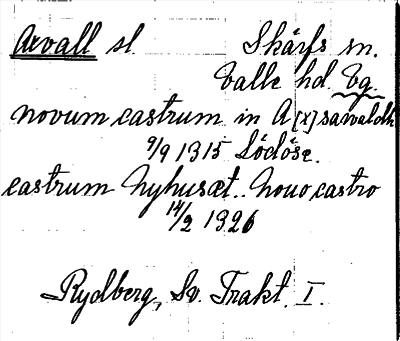 Arvall sl. Skärfs sn.
Valle hd. Vg.
novum castrum in A[x]sawaldh
9/9 1315 Lödöse.
castrum Nyhusæt.. Nouo castro
14/2 1326
Rydberg, Sv. Trakt. I.